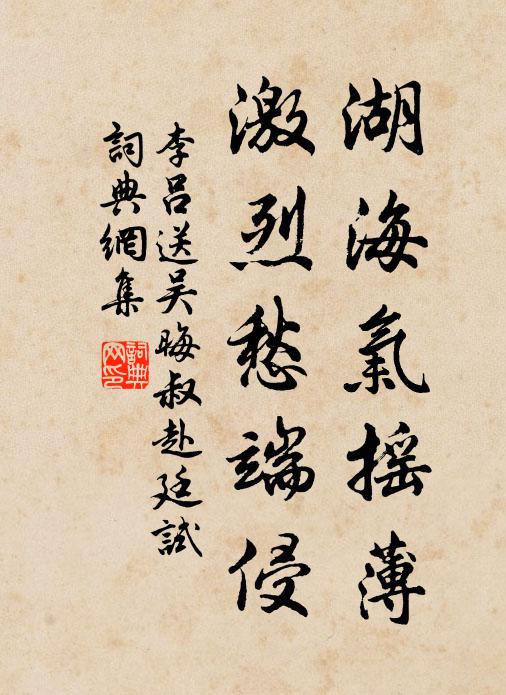 湖海氣摇薄
激烈愁端侵
李吕送吴晦叔赴廷試
詞典網集
詞典
网印